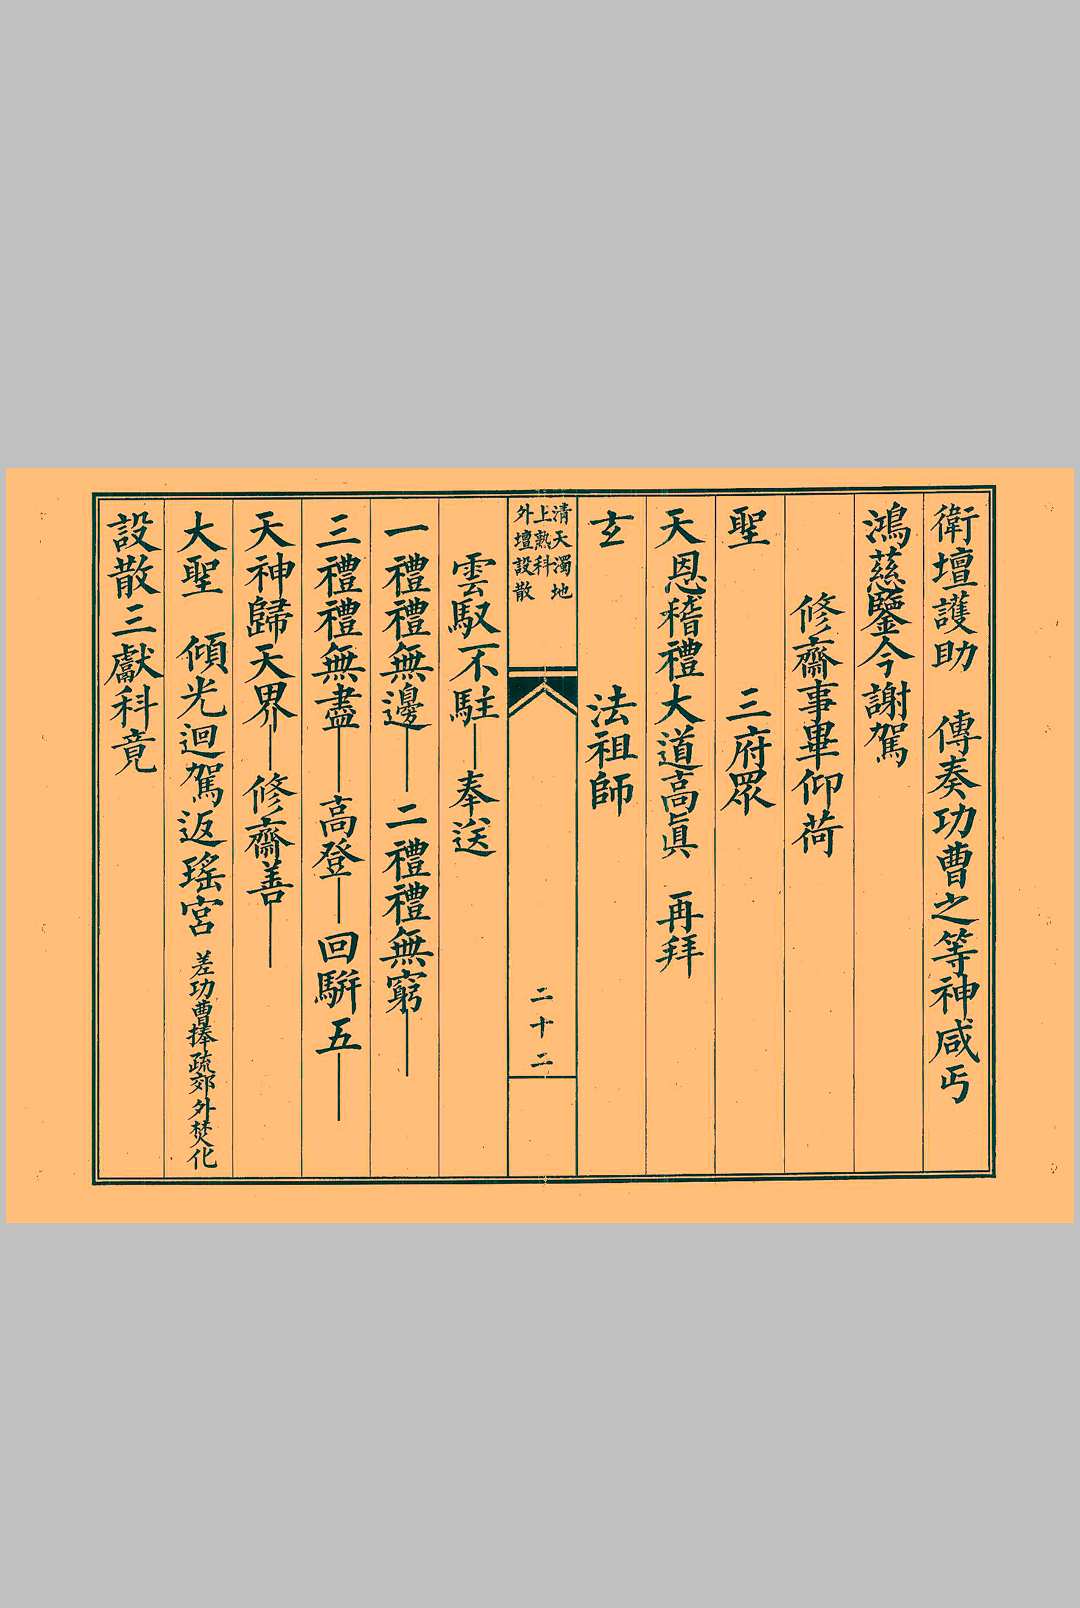 衛壇護助　傳奏功曹之等神咸丐
鴻慈鑒今謝駕
修齋事畢仰荷
聖　三府眾
天恩稽禮大道高眞　再拜
玄　法祖師
清天濁地
上熟科
外壇設散
二十二
雲馭不駐—奉送
一禮禮無邊—二禮禮無窮—
三禮禮無盡—高登—回駢五—
天神歸天界—修齋善—
大聖　傾光迴駕返瑤宮　差功曹捧疏郊外焚化
設散三獻科竟